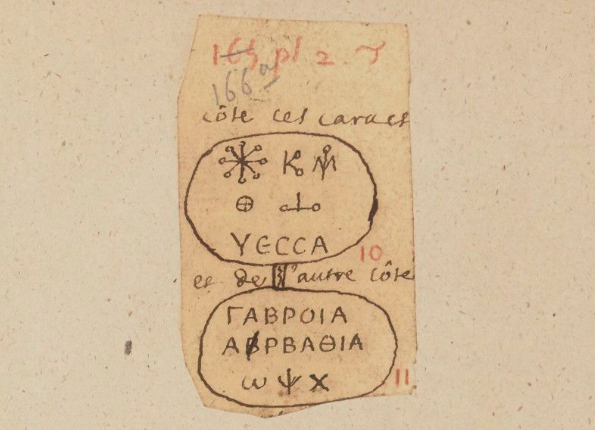 165 pl 2.
166
côte ces caract
YЄCCA
10
et de l'autre côte
ΓΑΒΡΟΙΑ
ΑΒΡΒΑΘΙΑ
ω ψ x
11